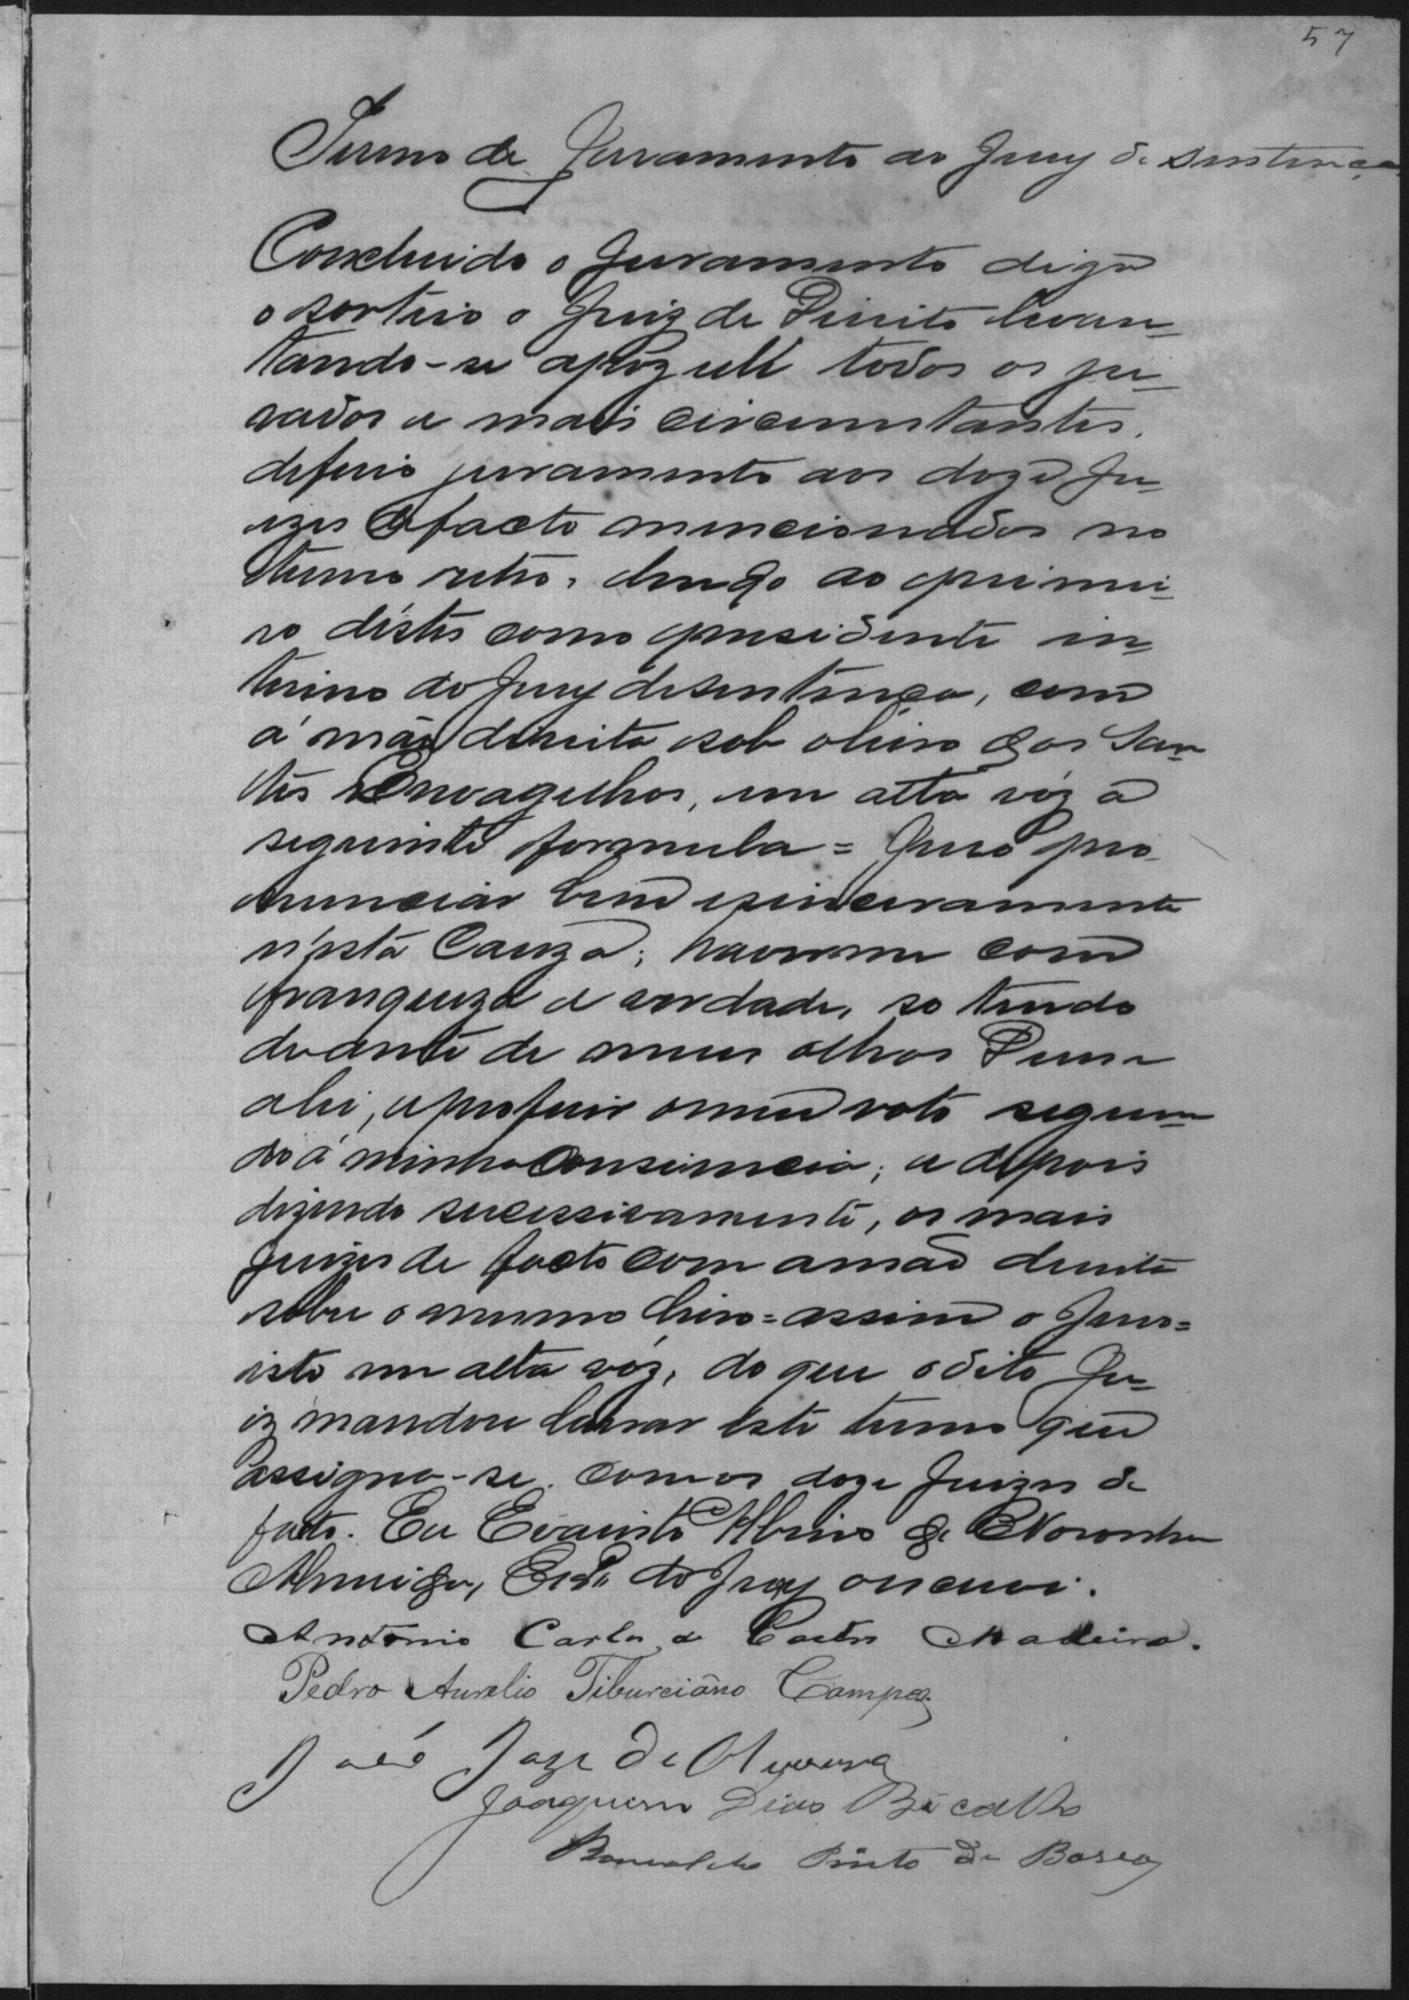 57
Termo de Juramento ao Jury de Sentença
Concluido o Juramento digo
o sorteio o Juiz de Direito levan-
tando-se apóz elle todos os ju-
rados e mais circumstantes,
deferio juramento aos doze Ju-
izes de facto mencionados no
termo retro, lendo ao primei-
ro déstes como presidente in-
terino do Jury de Sentença, com
á mão direita sob o livro dos San-
tos Envagelhos, em alta vóz a
seguinte formula = Juro pro
nunciar bem e sinceramente
n'ésta Cauza; haver-me com
franqueza e verdade, so tendo
deante de meus olhos Deus e
a lei, e proferir o meu voto segun-
do á minha Consciencia; e depois
dizendo sucessivamente, os mais
Juizes de facto com a mão direita
sobre o mesmo livro = assim o Juro =
isto em alta vóz, do que o dito Ju-
iz mandou lavrar este termo que
assigna-se com os doze Juizes de
facto. Eu Evaristo Albino de Noronha
Almeida, Escr.m do Jury o escrevi.
Antonio Carlos de Castro Madeira.
Pedro Aurelio Tiburciano Campos
José Jose de Oliveira
Joaquim Dias Bicalho
Romualdo Pinto de